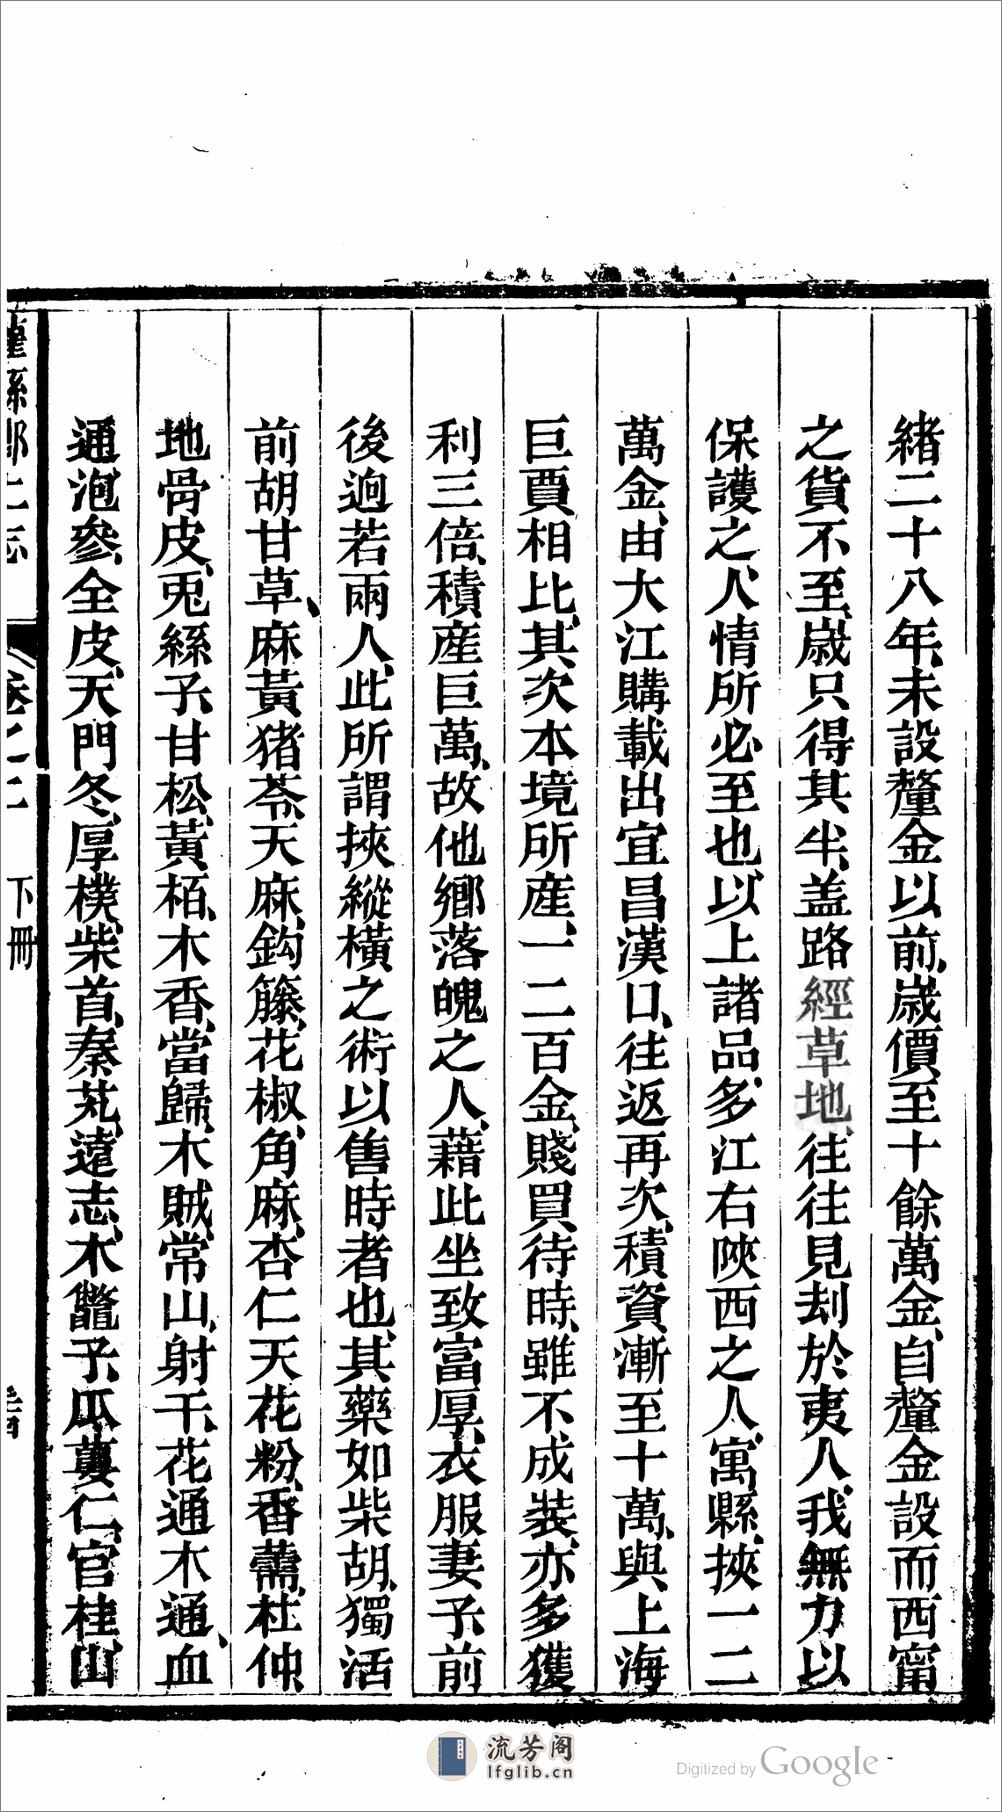 緒二十八年、未設釐金以前、歲價至十餘萬金、自釐金設而西甯
之貨不至、歲只得其半、盖路經草地、往往見刦於夷人、我無力以
保護之、人情所必至也、以上諸品、多江右陝西之人、寓縣、挾一二
萬金、由大江購載出宜昌漢口、往返再次、積資漸至十萬、與上海
巨賈相比、其次本境所產、一二百金、賤買待時、雖不成裝、亦多獲
利三倍、積產巨萬、故他鄉落魄之人、藉此坐致富厚、衣服妻子、前
後迥若兩人、此所謂挾縱橫之術以售時者也、其藥如柴胡、獨活
前胡甘草、麻黃猪苓、天麻、鈎籐、花椒、角麻、杏仁天花粉、香薷、杜仲
地骨皮、兎絲子、甘松、黃栢、木香、當歸、木賊、常山、射干、花通木通、血
通、泡參、全皮、天門冬、厚樸、柴首、秦艽、遠志、木鼈子、瓜蔞仁、官桂、山
下冊
流芳阁
lfglib.cn
Digitized by Google